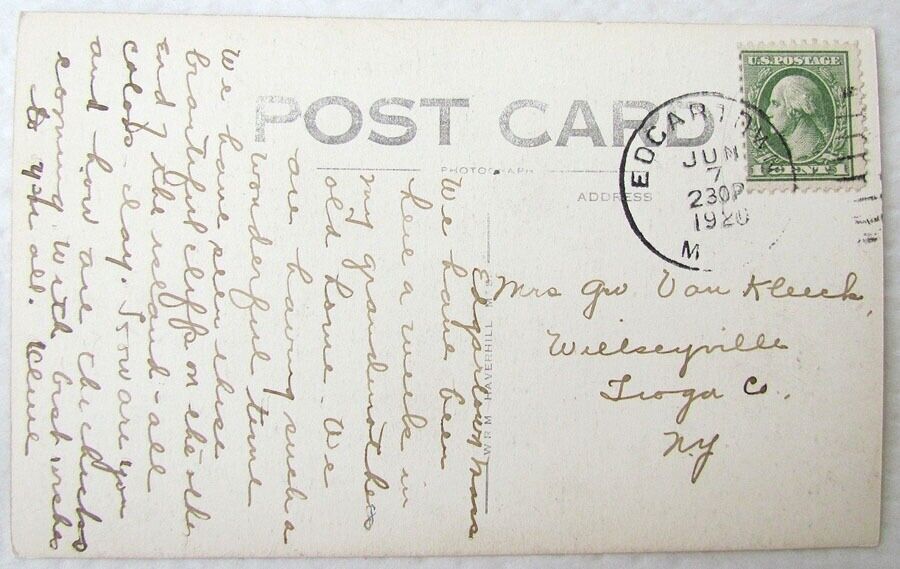 POST CARD
PHOTOGRAPH
ADDRESS
U.S. POSTAGE
CENTS
EDGARTOWN
JUN
7
230P
1920
M
Mrs Geo Van Kleeck
Willseyville
Tioga Co.
NY
W R M HAVERHILL
Edgartown Mass
We have been
here a week in
my grandmothers
old home - We
are having such a
wonderful time
We have seen these
beautiful cliffs on the other
end of the island - all
colors - clay. How are you
and how are the chicks
coming. With best wishes
to you all.